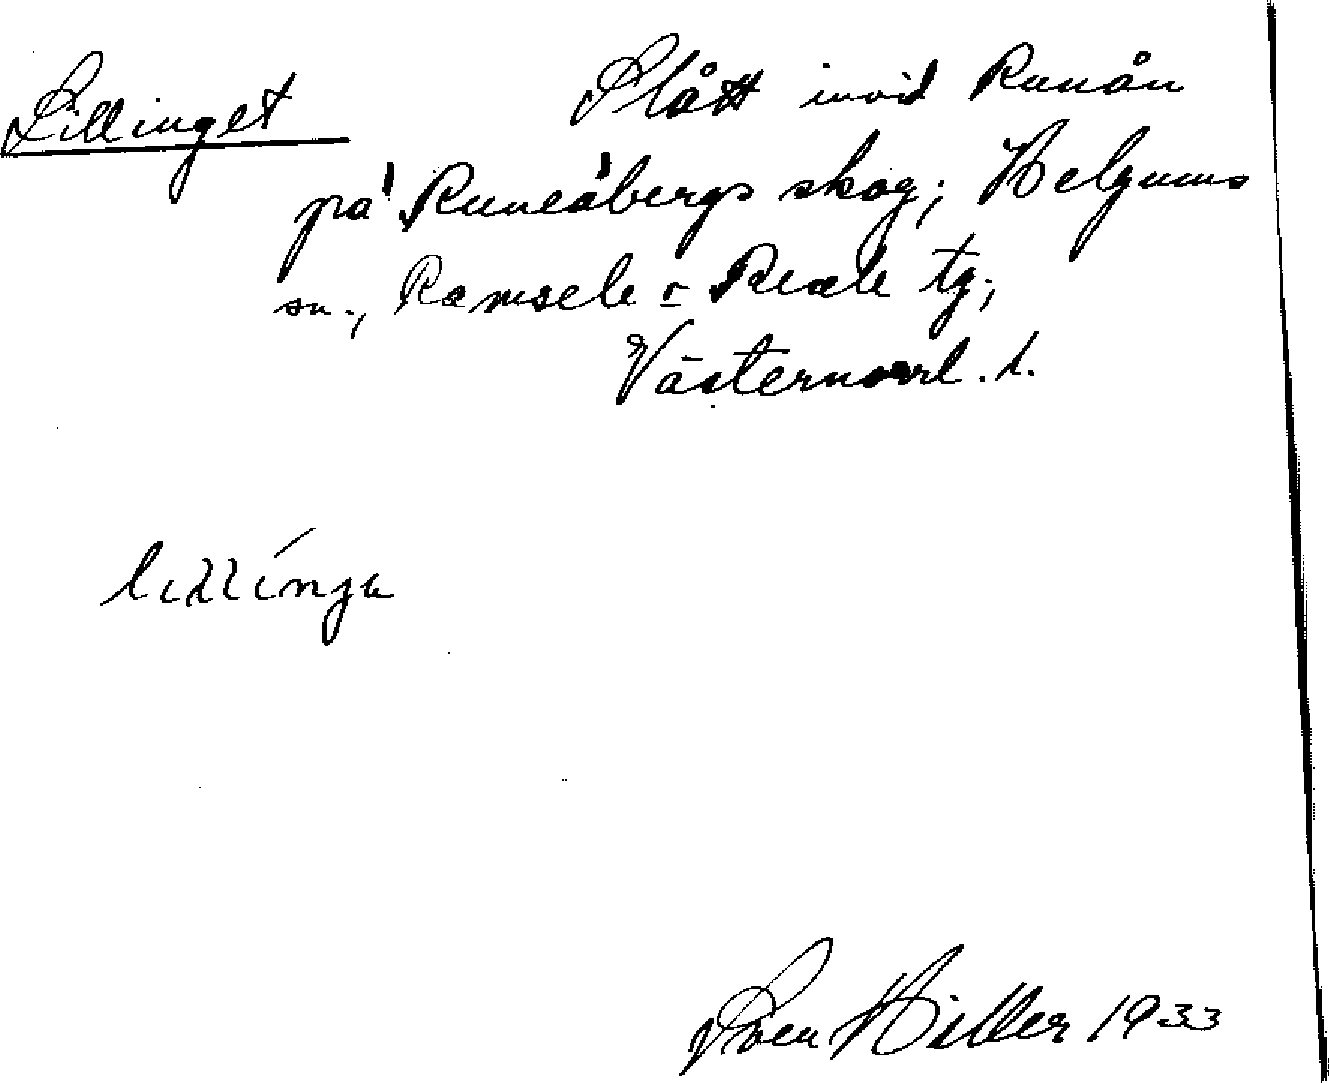 Lillinget
Slått invid Runån
på Runeåbergs skog; Helgums
sn., Ramsele o Resele tg;
Västernorrl. l.
lillíngu
Sven Hiller 1933